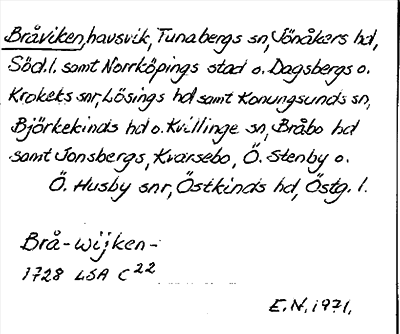 Bråviken, havsvik, Tunabergs sn, Jönåkers hd,
Söd.l. samt Norrköpings stad o. Dagsbergs o.
Krokeks snr, Lösings hd samt Konungsunds sn,
Björkekinds hd o. Kvillinge sn, Bråbo hd
samt Jonsbergs, Kvarsebo, Ö. Stenby o.
Ö. Husby snr, Östkinds hd, Östg. l.
Brå-wijken-
1728 LSA C 22
E.N. 1971.